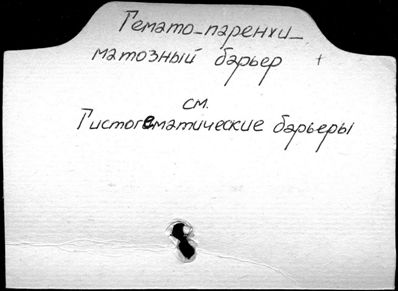 Гемато-паренхи-
матозный барьер +
см.
Гистогематические барьеры